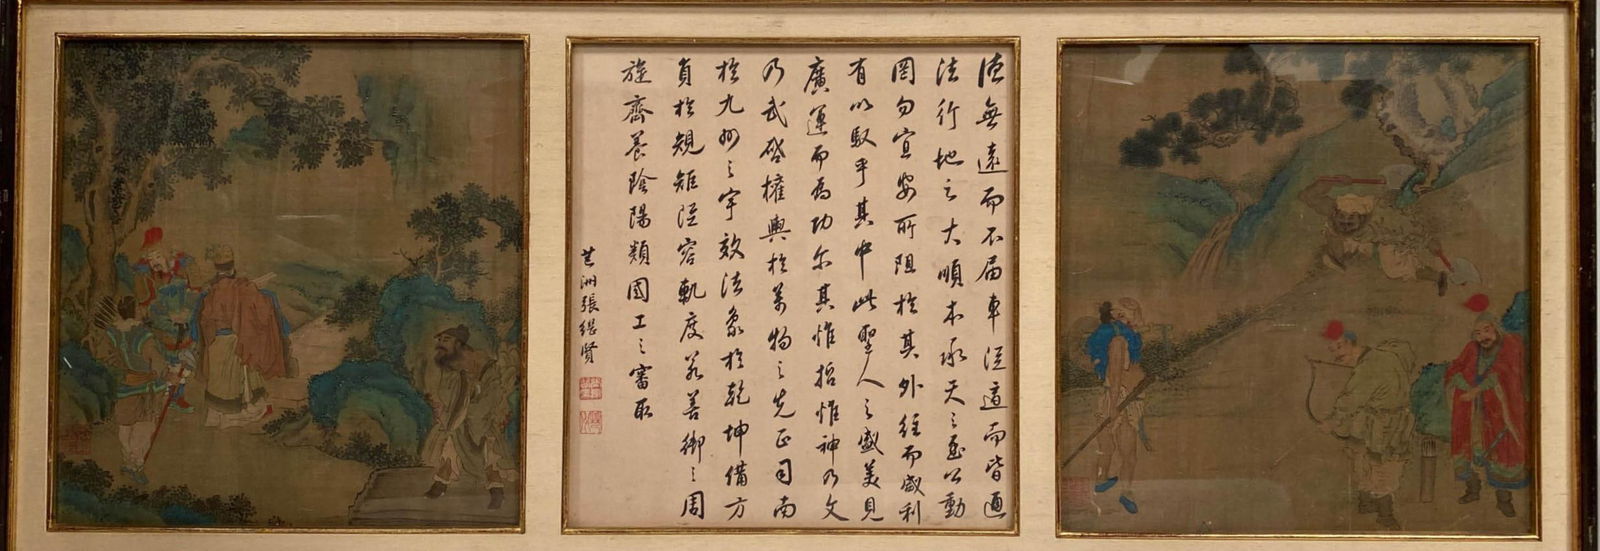 德無遠而不届車從適而皆通
法行地之大順本承天之至公動
罔勿宜安所阻於其外往而咸利
有以馭乎其中此聖人之盛美見
廣運而為功尔其惟哲惟神乃文
乃武啓權輿於萬物之先正司南
於九州之宇效法象於乾坤備方
員於規矩從容軌度若善御之周
旋齊養陰陽類國工之審取
芑洲張繼賢